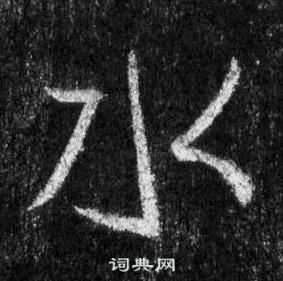 水
词典网